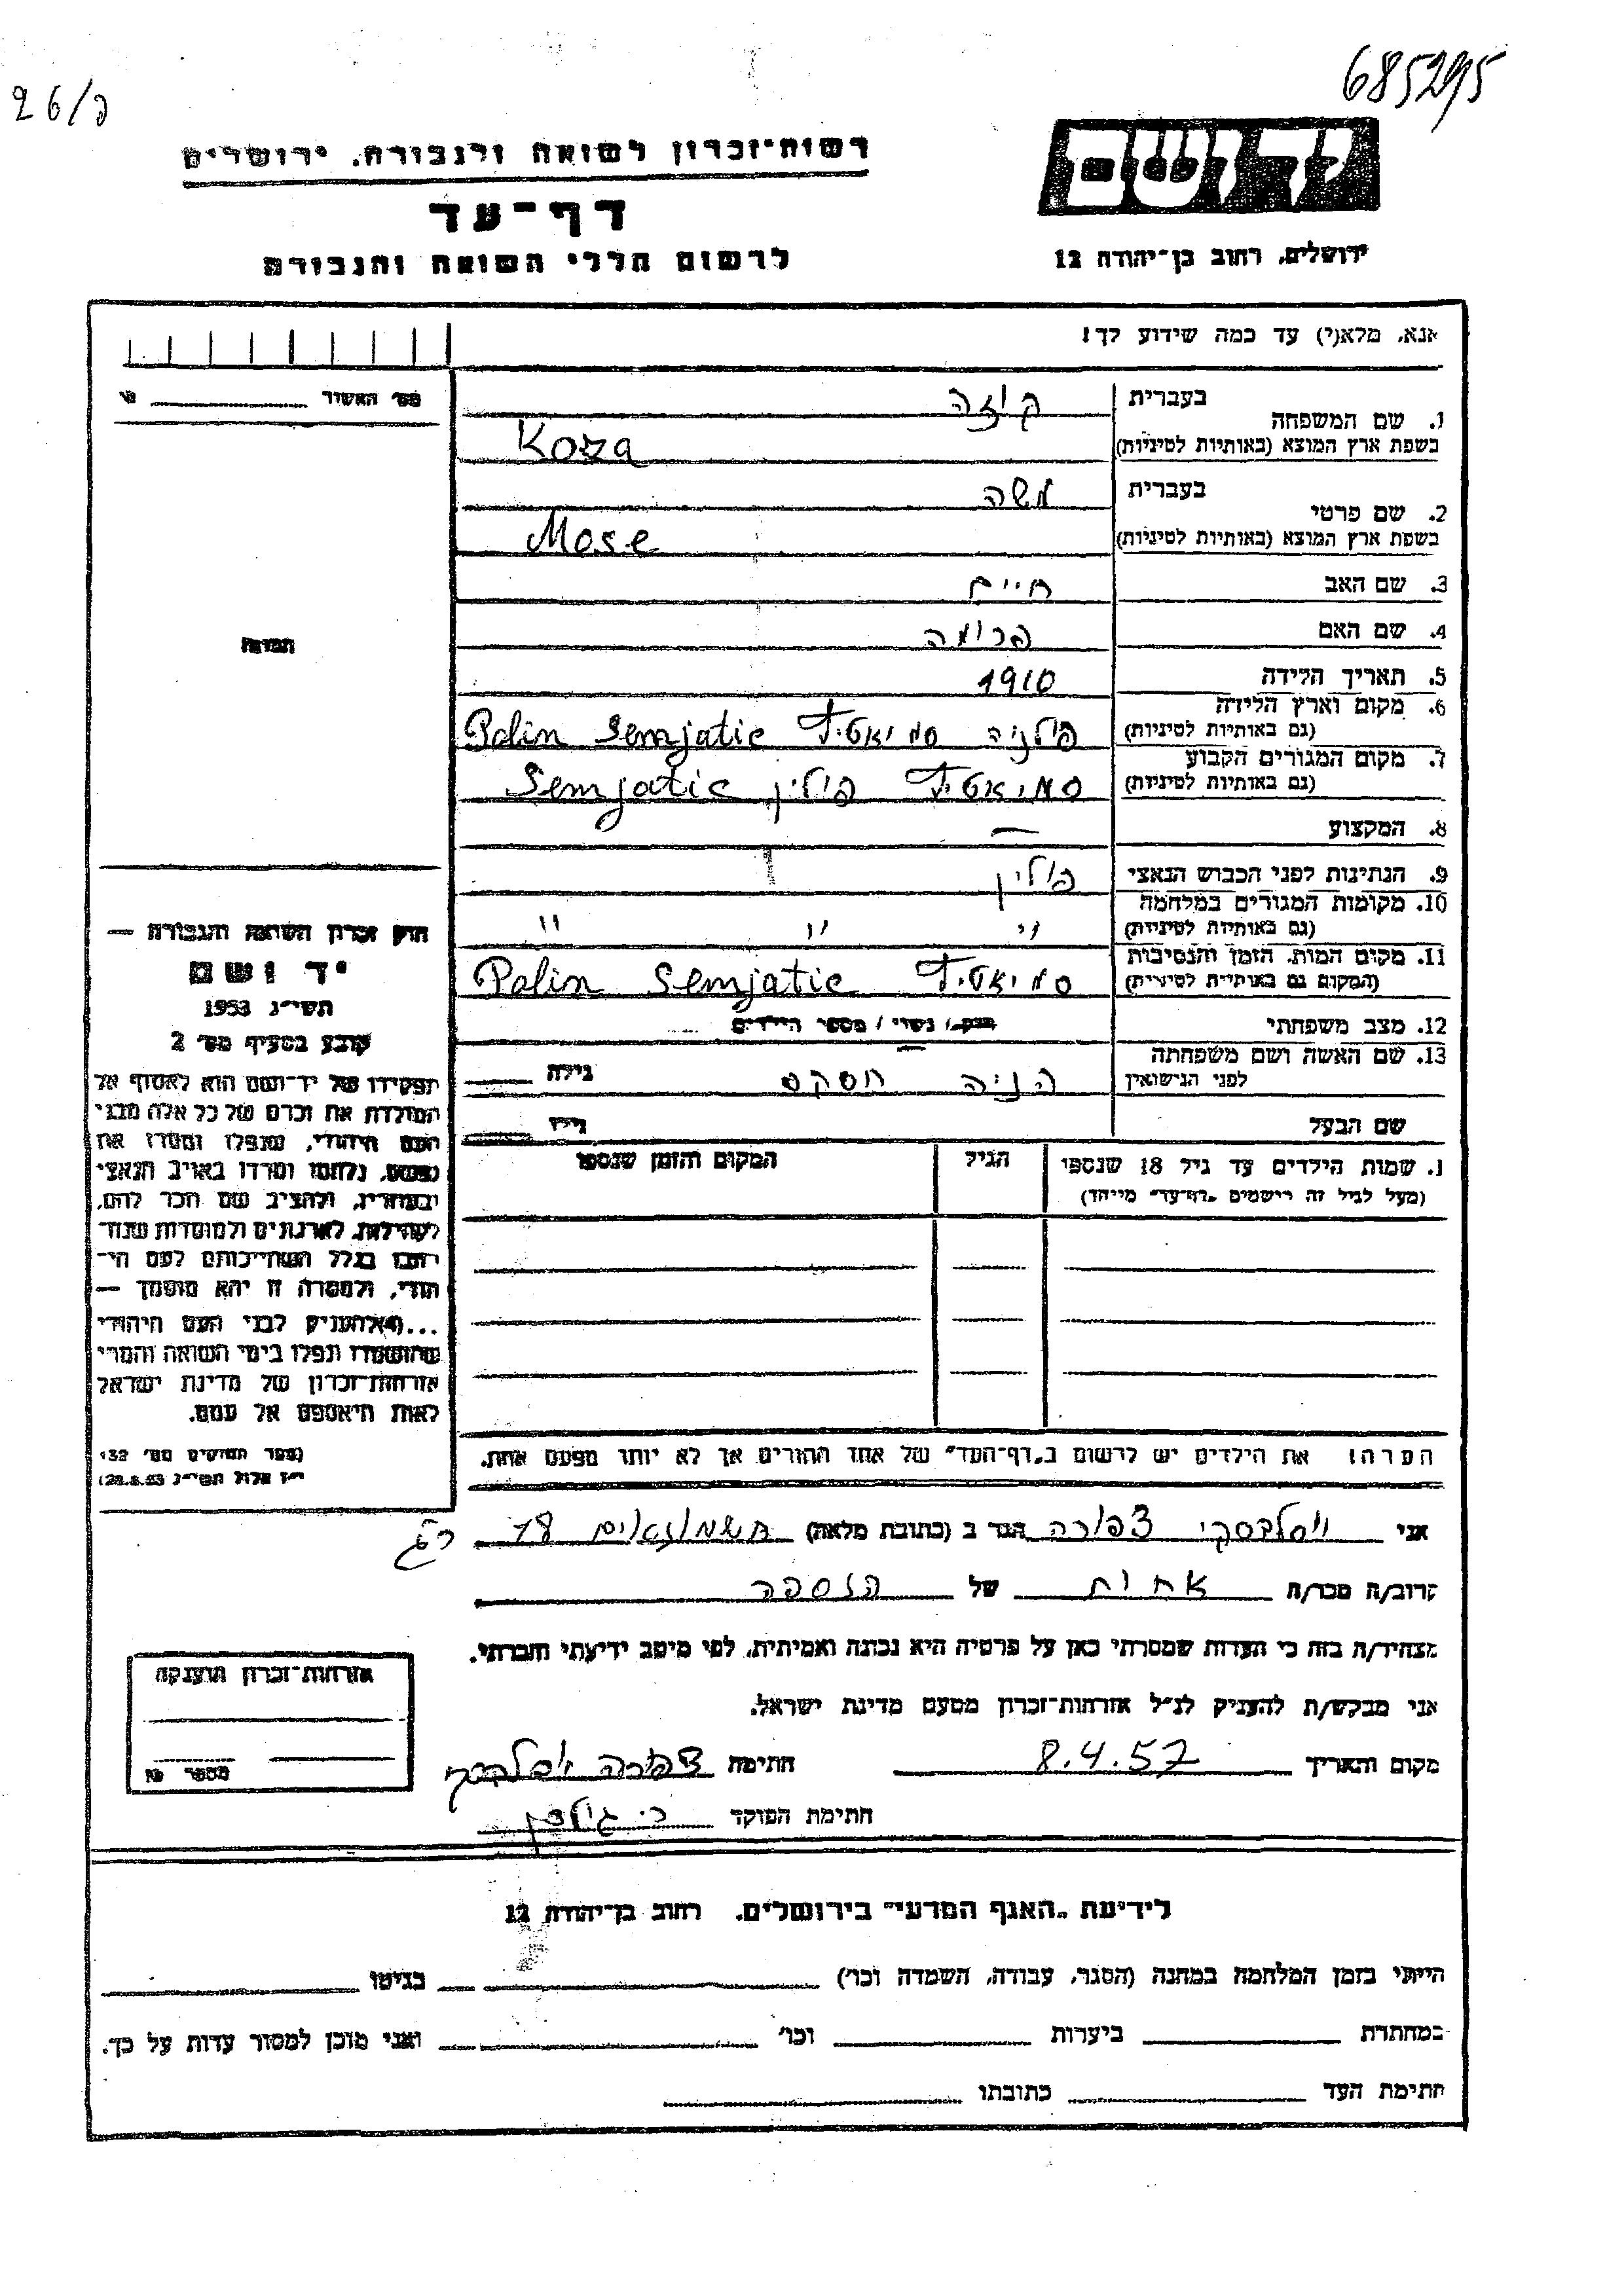 685295
26/ק
יד ושם
רשות־זכרון לשואה ולגבורה, ירושלים
דף־עד
לרשום חללי השואה והגבורה
ירושלים, רחוב בן־יהודה 12
אנא, מלא(י) עד כמה שידוע לך!
מס׳ האשור
1. שם המשפחה בעברית קוזה
בשפת ארץ המוצא (באותיות לטיניות) Koza
2. שם פרטי בעברית משה
בשפת ארץ המוצא (באותיות לטיניות) Mose
3. שם האב חיים
4. שם האם פרומה
5. תאריך הלידה 1910
6. מקום וארץ הלידה
(גם באותיות לטיניות) פולניה סמיאטיץ Polin Semjatic
7. מקום המגורים הקבוע
(גם באותיות לטיניות) סמיאטיץ פולין Semjatic
8. המקצוע —
9. הנתינות לפני הכבוש הנאצי פולין
10. מקומות המגורים במלחמה
(גם באותיות לטיניות) " " "
11. מקום המות, הזמן והנסיבות
(המקום גם באותיות לטיניות) סמיאטיץ Polin Semjatic
12. מצב משפחתי רווק / נשוי / מספר הילדים
13. שם האשה ושם משפחתה
לפני הנישואין הניה גילה
שם הבעל גילו
1. שמות הילדים עד גיל 18 שנספו
(מעל לגיל זה רושמים „דף־עד” מיוחד)
הגיל
המקום והזמן שנספו
הערה: את הילדים יש לרשום ב„דף־העד” של אחד ההורים אך לא יותר מפעם אחת.
התמונה
חוק זכרון השואה והגבורה —
יד ושם
תשי״ג 1953
קובע בסעיף מס׳ 2
תפקידו של יד־ושם הוא לאסוף אל
המולדת את זכרם של כל אלה מבני
העם היהודי, שנפלו ומסרו את
נפשם, נלחמו ומרדו באויב הנאצי
ובעוזריו, ולהציב שם וזכר להם,
לקהילות, לארגונים ולמוסדות שנח־
רבו בגלל השתייכותם לעם היהו־
הודי, ולמטרה זו יהא מוסמך —
...(4) להעניק לבני העם היהודי
שהושמדו ונפלו בימי השואה והמרי
אזרחות־זכרון של מדינת ישראל
לאות היאספם אל עמם.
(ספר החוקים מס׳ 132
י״ז אלול תשי״ג 28.8.53)
אני ויסלבסקי צפורה הגר ב (כתובת מלאה) חשמונאים 18 ר״ג
קרוב/ה מכר/ה אחות של הנספה
מצהיר/ה בזה כי העדות שמסרתי כאן על פרטיה היא נכונה ואמיתית, לפי מיטב ידיעתי והכרתי.
אני מבקש/ת להעניק לנ״ל אזרחות־זכרון מטעם מדינת ישראל.
מקום ותאריך 8.4.57 חתימה צפורה ויסלבסקי
חתימת הפוקד
אזרחות־זכרון הוענקה
מספר
לידיעת „האגף המדעי” בירושלים, רחוב בן־יהודה 12
הייתי בזמן המלחמה במחנה (הסגר, עבודה, השמדה וכו׳) בגיטו
במחתרת ביערות וכו׳ ואני מוכן למסור עדות על כך.
חתימת העד כתובתו